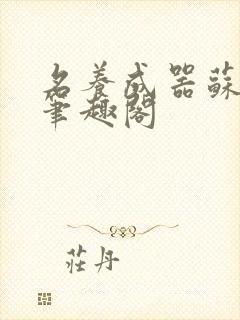 名養成器蘇
筆趣閣
莊丹